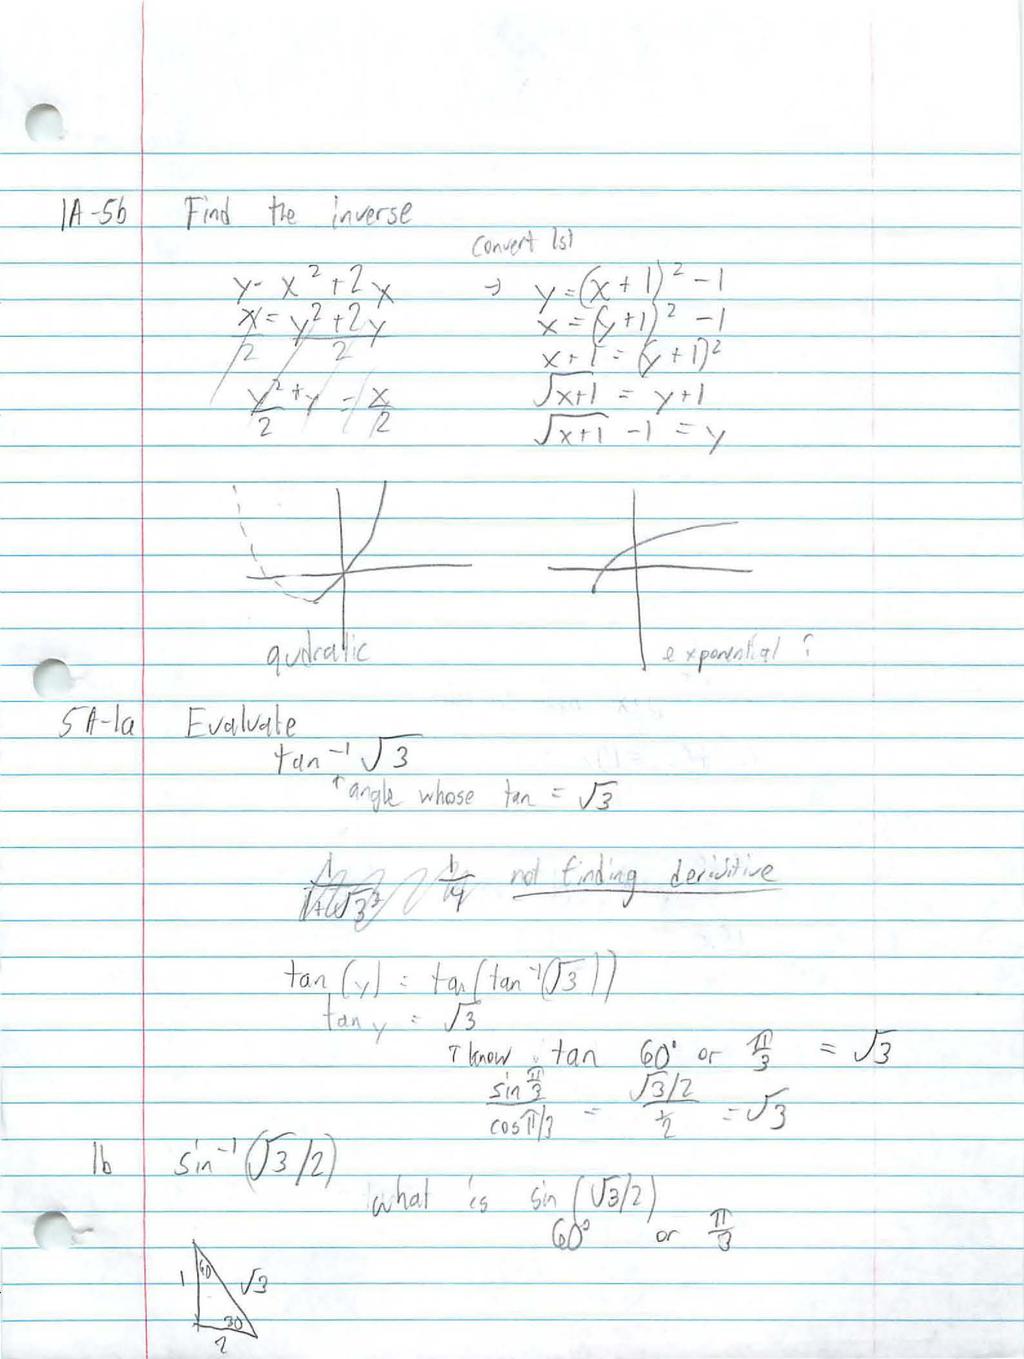 1A-5b Find the inverse
convert 1st
y = x² + 2x → y = (x + 1)² - 1
x/2 = (y² + 2y)/2 x = (y + 1)² - 1
x + 1 = (y + 1)²
y²/2 + y = x/2 √(x+1) = y + 1
√(x+1) - 1 = y
qudratic exponential ?
5A-1a Evaluate
tan⁻¹ √3
↑ angle whose tan = √3
not finding derivitive
tan (y) = tan(tan⁻¹(√3))
tan y = √3
↑ know tan 60° or π/3 = √3
(sin π/3)/(cos π/3) = (√3/2)/(1/2) = √3
1b sin⁻¹(√3/2)
what is sin (√3/2)
60° or π/3
60
1 √3
30
2